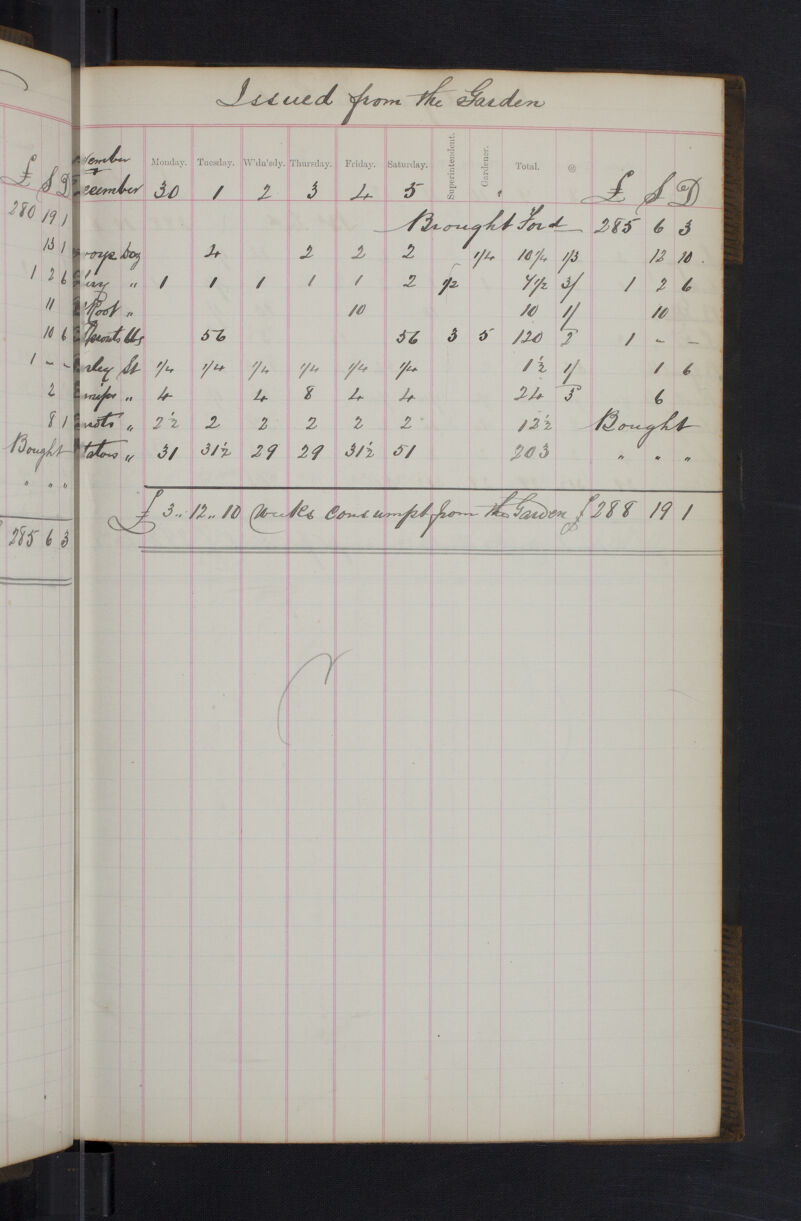 £ S D
280 19 1
13 1
1 2 6
11
10 6
1 - -
2
8 1
Bought
" " "
285 6 3
Issued from the Garden
Monday. Tuesday. W'dn'sdy. Thursday. Friday. Saturday. Superintendent. Gardener. " Total. @ £ S D
30 1 2 3 4 5
Brought Ford 285 6 3
Doz 2 2 2 2 1/4 10 1/4 1/3 12 10
" 1 1 1 1 1 2 1/2 7 1/2 3/ 1 2 6
Root " 10 10 1/ 10
lbs 56 56 3 5 120 2 1 - -
St 1/4 1/4 1/4 1/4 1/4 1/4 1 1/2 1/ 1 6
" 4 4 8 4 4 24 3 6
" 2 1/2 2 2 2 2 2 12 1/2 Bought
" 31 31 1/2 29 29 31 1/2 51 203 " " "
£ 3 " 12 " 10 Weeks consumpt from the Garden £ 288 19 1